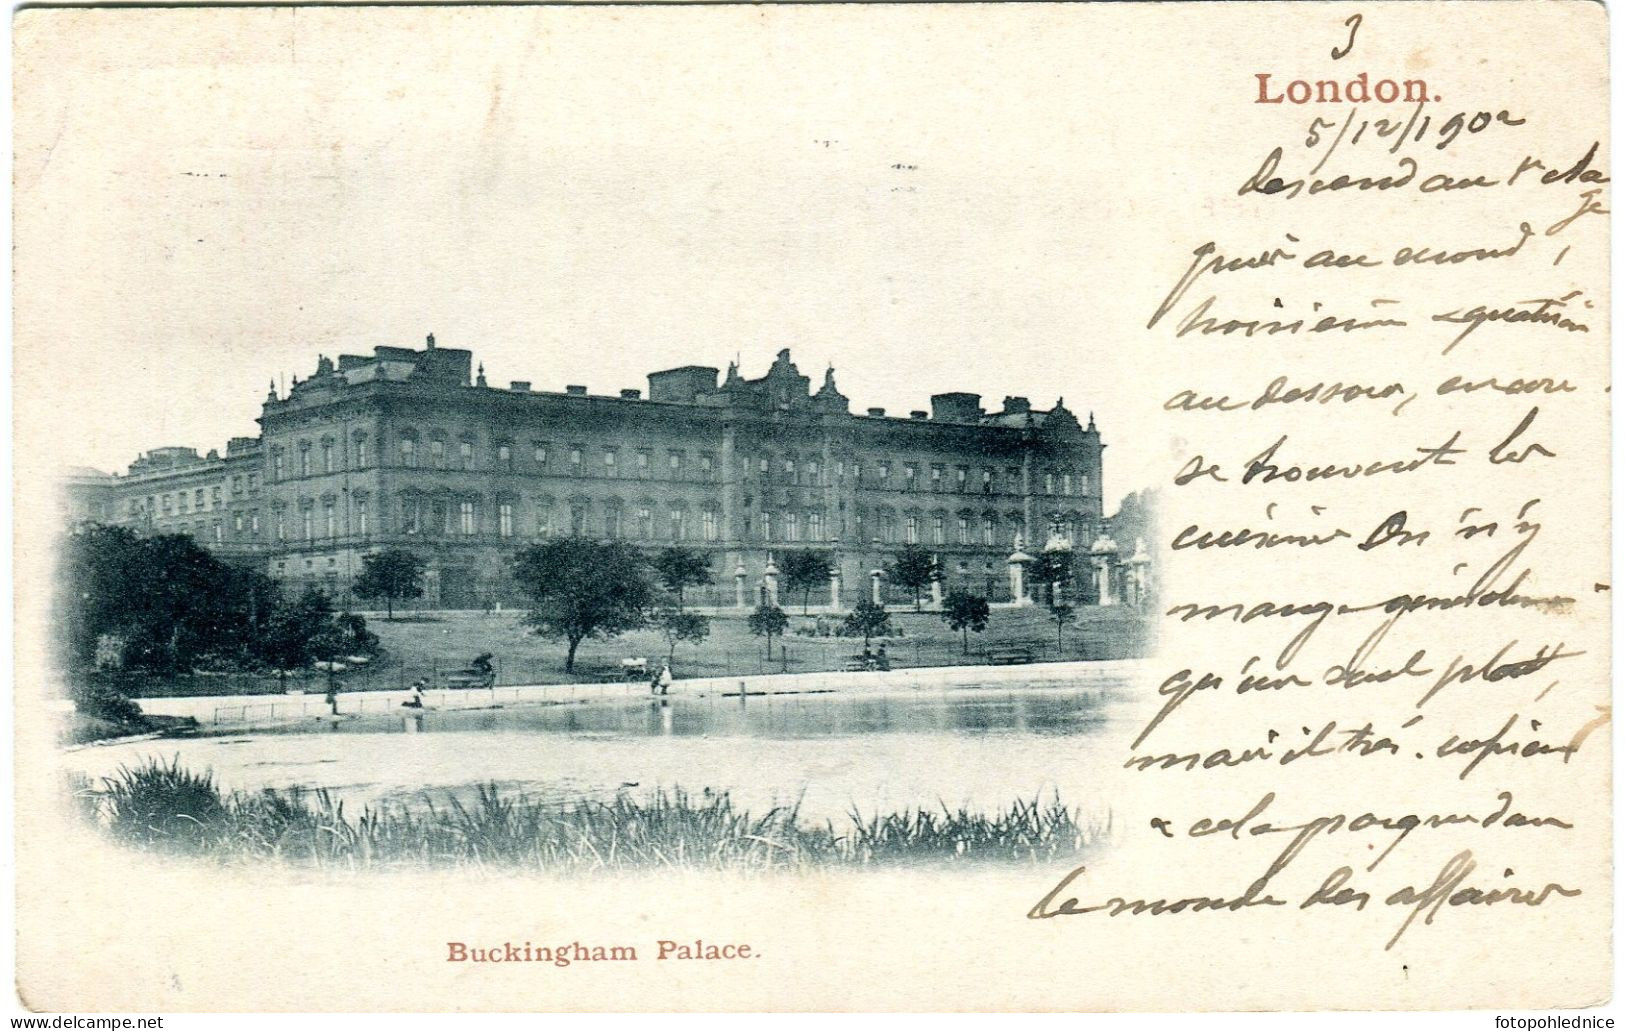 3
London.
5/12/1902
descend au 1r éta
ge
puis au second,
troisième & quatrièm
au dessous, encore
se trouvent les
cuisines On n'y
mange générale
qu'un seul plat,
mais il très. copieux
& cela parque dans
le monde des affaires
Buckingham Palace.
delcampe.net
fotopohlednice